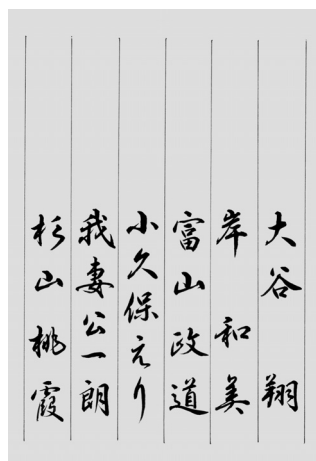 大谷 翔
岸 和美
富山政道
小久保えり
我妻公一朗
杉山桃霞